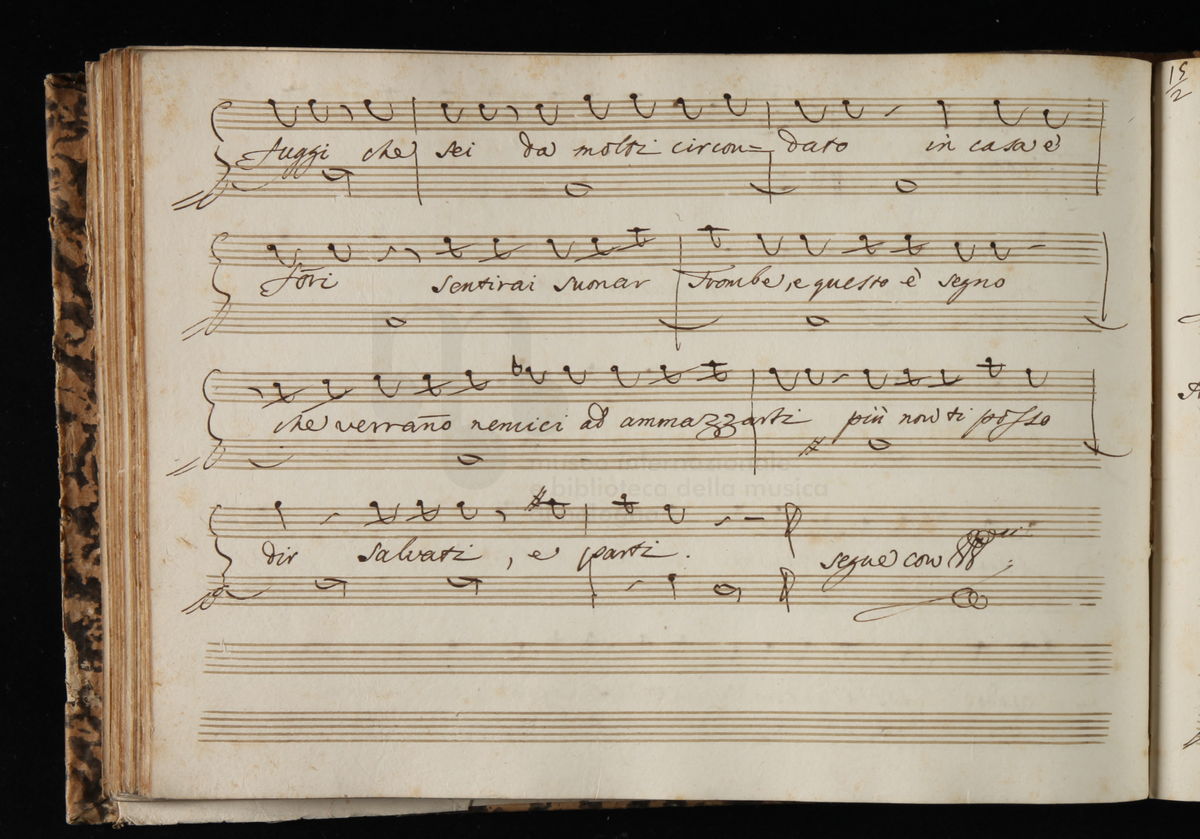 fuggi che sei da molti circon= dato in casa è
15
2
fōri sentirai suonar Trombe, e questo è segno
che verran̄o nemici ad ammazzarti più non ti posso
museo internazionale
e biblioteca della musica
dir salvati, e parti. segue con